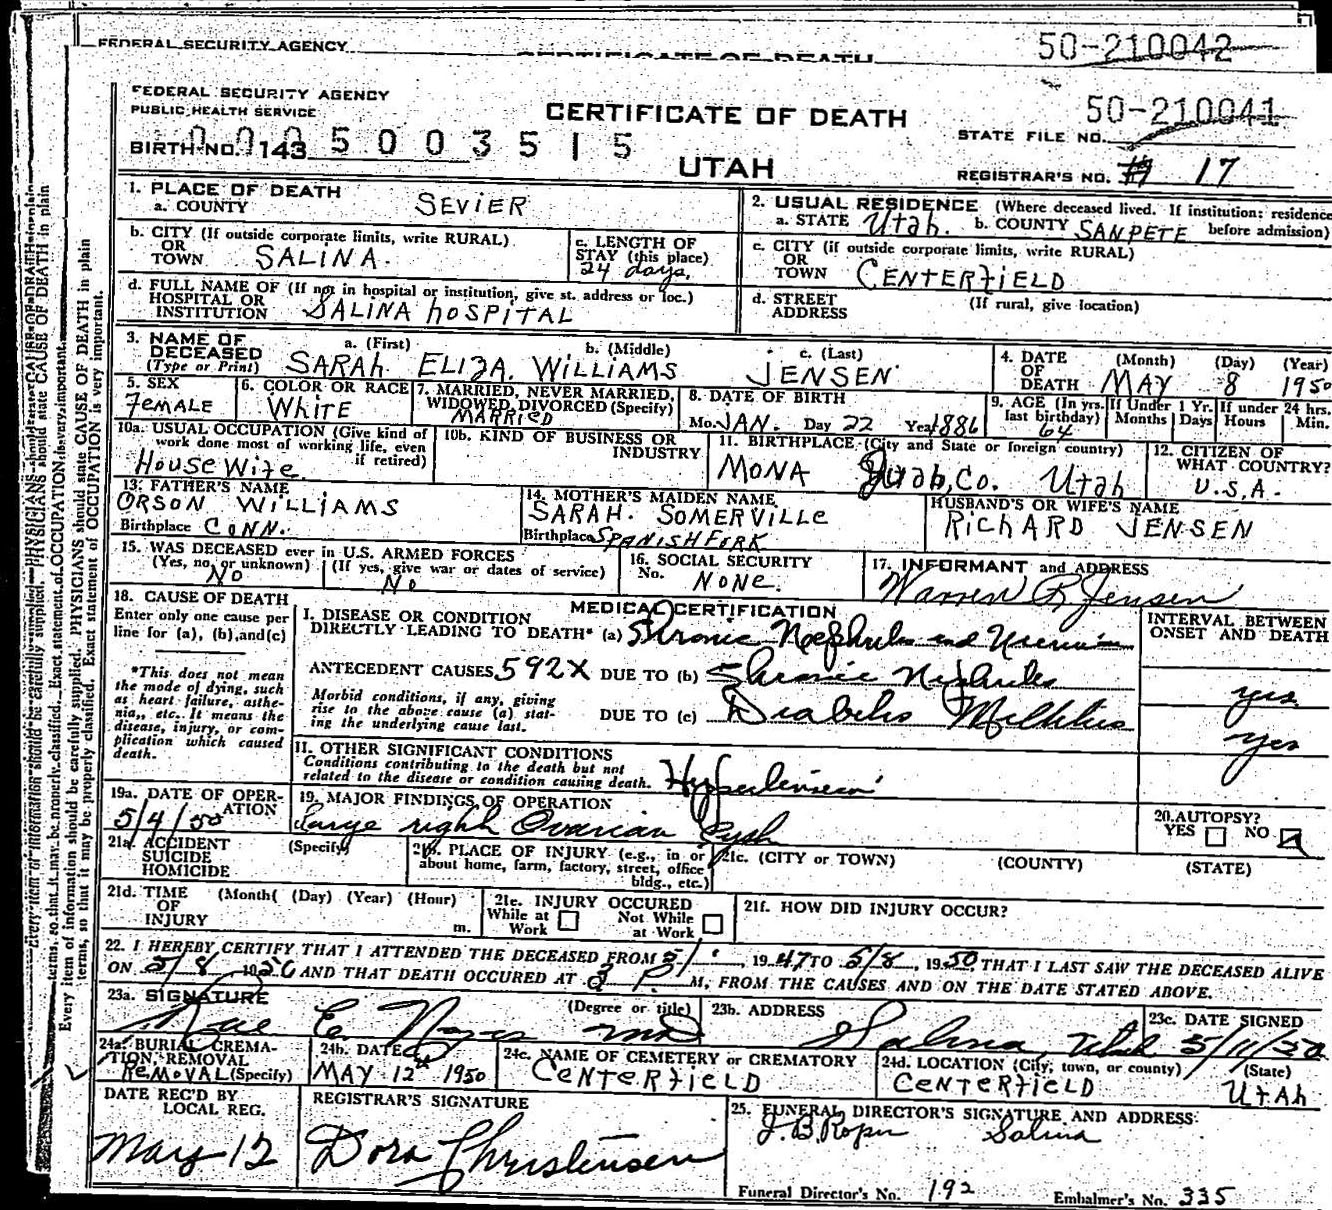 FEDERAL SECURITY AGENCY
CERTIFICATE OF DEATH
50-210042
FEDERAL SECURITY AGENCY
PUBLIC HEALTH SERVICE
CERTIFICATE OF DEATH
50-210041
STATE FILE NO.
BIRTH NO. 143
0005003515
UTAH
REGISTRAR'S NO. 17
1. PLACE OF DEATH
a. COUNTY SEVIER
2. USUAL RESIDENCE (Where deceased lived. If institution; residence before admission)
a. STATE Utah. b. COUNTY SANPETE
b. CITY (If outside corporate limits, write RURAL)
OR TOWN SALINA.
c. LENGTH OF STAY (this place)
24 days.
c. CITY (if outside corporate limits, write RURAL)
OR TOWN CENTERFIELD
d. FULL NAME OF (If not in hospital or institution, give st. address or loc.)
HOSPITAL OR INSTITUTION SALINA HOSPITAL
d. STREET ADDRESS (If rural, give location)
3. NAME OF DECEASED (Type or Print)
a. (First) b. (Middle) c. (Last)
SARAH ELIZA. WILLIAMS JENSEN
4. DATE OF DEATH (Month) (Day) (Year)
MAY 8 1950
5. SEX
FEMALE
6. COLOR OR RACE
WHITE
7. MARRIED, NEVER MARRIED, WIDOWED, DIVORCED (Specify)
MARRIED
8. DATE OF BIRTH
Mo. JAN. Day 22 Year 1886
9. AGE (In yrs. last birthday) 64
If Under 1 Yr. Months Days
If under 24 hrs. Hours Min.
10a. USUAL OCCUPATION (Give kind of work done most of working life, even if retired)
HouseWife
10b. KIND OF BUSINESS OR INDUSTRY
11. BIRTHPLACE (City and State or foreign country)
MONA Co. Utah
12. CITIZEN OF WHAT COUNTRY?
U.S.A.
13. FATHER'S NAME
ORSON WILLIAMS
Birthplace CONN.
14. MOTHER'S MAIDEN NAME
SARAH. SOMERVILLE
Birthplace SPANISH FORK
HUSBAND'S OR WIFE'S NAME
RICHARD JENSEN
15. WAS DECEASED ever in U.S. ARMED FORCES
(Yes, no, or unknown) (If yes, give war or dates of service)
NO No
16. SOCIAL SECURITY No.
NONE.
17. INFORMANT and ADDRESS
Warren R Jensen
18. CAUSE OF DEATH
Enter only one cause per line for (a), (b), and (c)
*This does not mean the mode of dying, such as heart failure, asthenia, etc. It means the disease, injury, or complication which caused death.
MEDICAL CERTIFICATION
I. DISEASE OR CONDITION DIRECTLY LEADING TO DEATH* (a) Chronic Nephritis and Uremia
INTERVAL BETWEEN ONSET AND DEATH
ANTECEDENT CAUSES 592X DUE TO (b) Chronic Nephritis
yrs.
Morbid conditions, if any, giving rise to the above cause (a) stating the underlying cause last.
DUE TO (c) Diabetes Mellitus
yrs
II. OTHER SIGNIFICANT CONDITIONS
Conditions contributing to the death but not related to the disease or condition causing death.
Hypertension
19a. DATE OF OPERATION
5/4/50
19. MAJOR FINDINGS OF OPERATION
Large right Ovarian Cyst
20. AUTOPSY?
YES NO
21a. ACCIDENT SUICIDE HOMICIDE (Specify)
21b. PLACE OF INJURY (e.g., in or about home, farm, factory, street, office bldg., etc.)
21c. (CITY or TOWN) (COUNTY) (STATE)
21d. TIME OF INJURY (Month) (Day) (Year) (Hour) m.
21e. INJURY OCCURED
While at Work Not While at Work
21f. HOW DID INJURY OCCUR?
22. I HEREBY CERTIFY THAT I ATTENDED THE DECEASED FROM 5/1, 1947 TO 5/8, 1950, THAT I LAST SAW THE DECEASED ALIVE
ON 5/8 1950 AND THAT DEATH OCCURED AT P. M, FROM THE CAUSES AND ON THE DATE STATED ABOVE.
23a. SIGNATURE (Degree or title)
Rae E. Noyes MD
23b. ADDRESS
Salina, Utah
23c. DATE SIGNED
5/11/50
24a. BURIAL CREMATION, REMOVAL (Specify)
REMOVAL
24b. DATE
MAY 12th 1950
24c. NAME OF CEMETERY or CREMATORY
CENTERFIELD
24d. LOCATION (City, town, or county) (State)
CENTERFIELD UTAH
DATE REC'D BY LOCAL REG.
May 12
REGISTRAR'S SIGNATURE
Dora Christensen
25. FUNERAL DIRECTOR'S SIGNATURE AND ADDRESS:
J. B. Roper Salina
Funeral Director's No. 192 Embalmer's No. 335
Every item of information should be carefully supplied. PHYSICIANS should state CAUSE OF DEATH in plain
terms, so that it may be properly classified. Exact statement of OCCUPATION is very important.